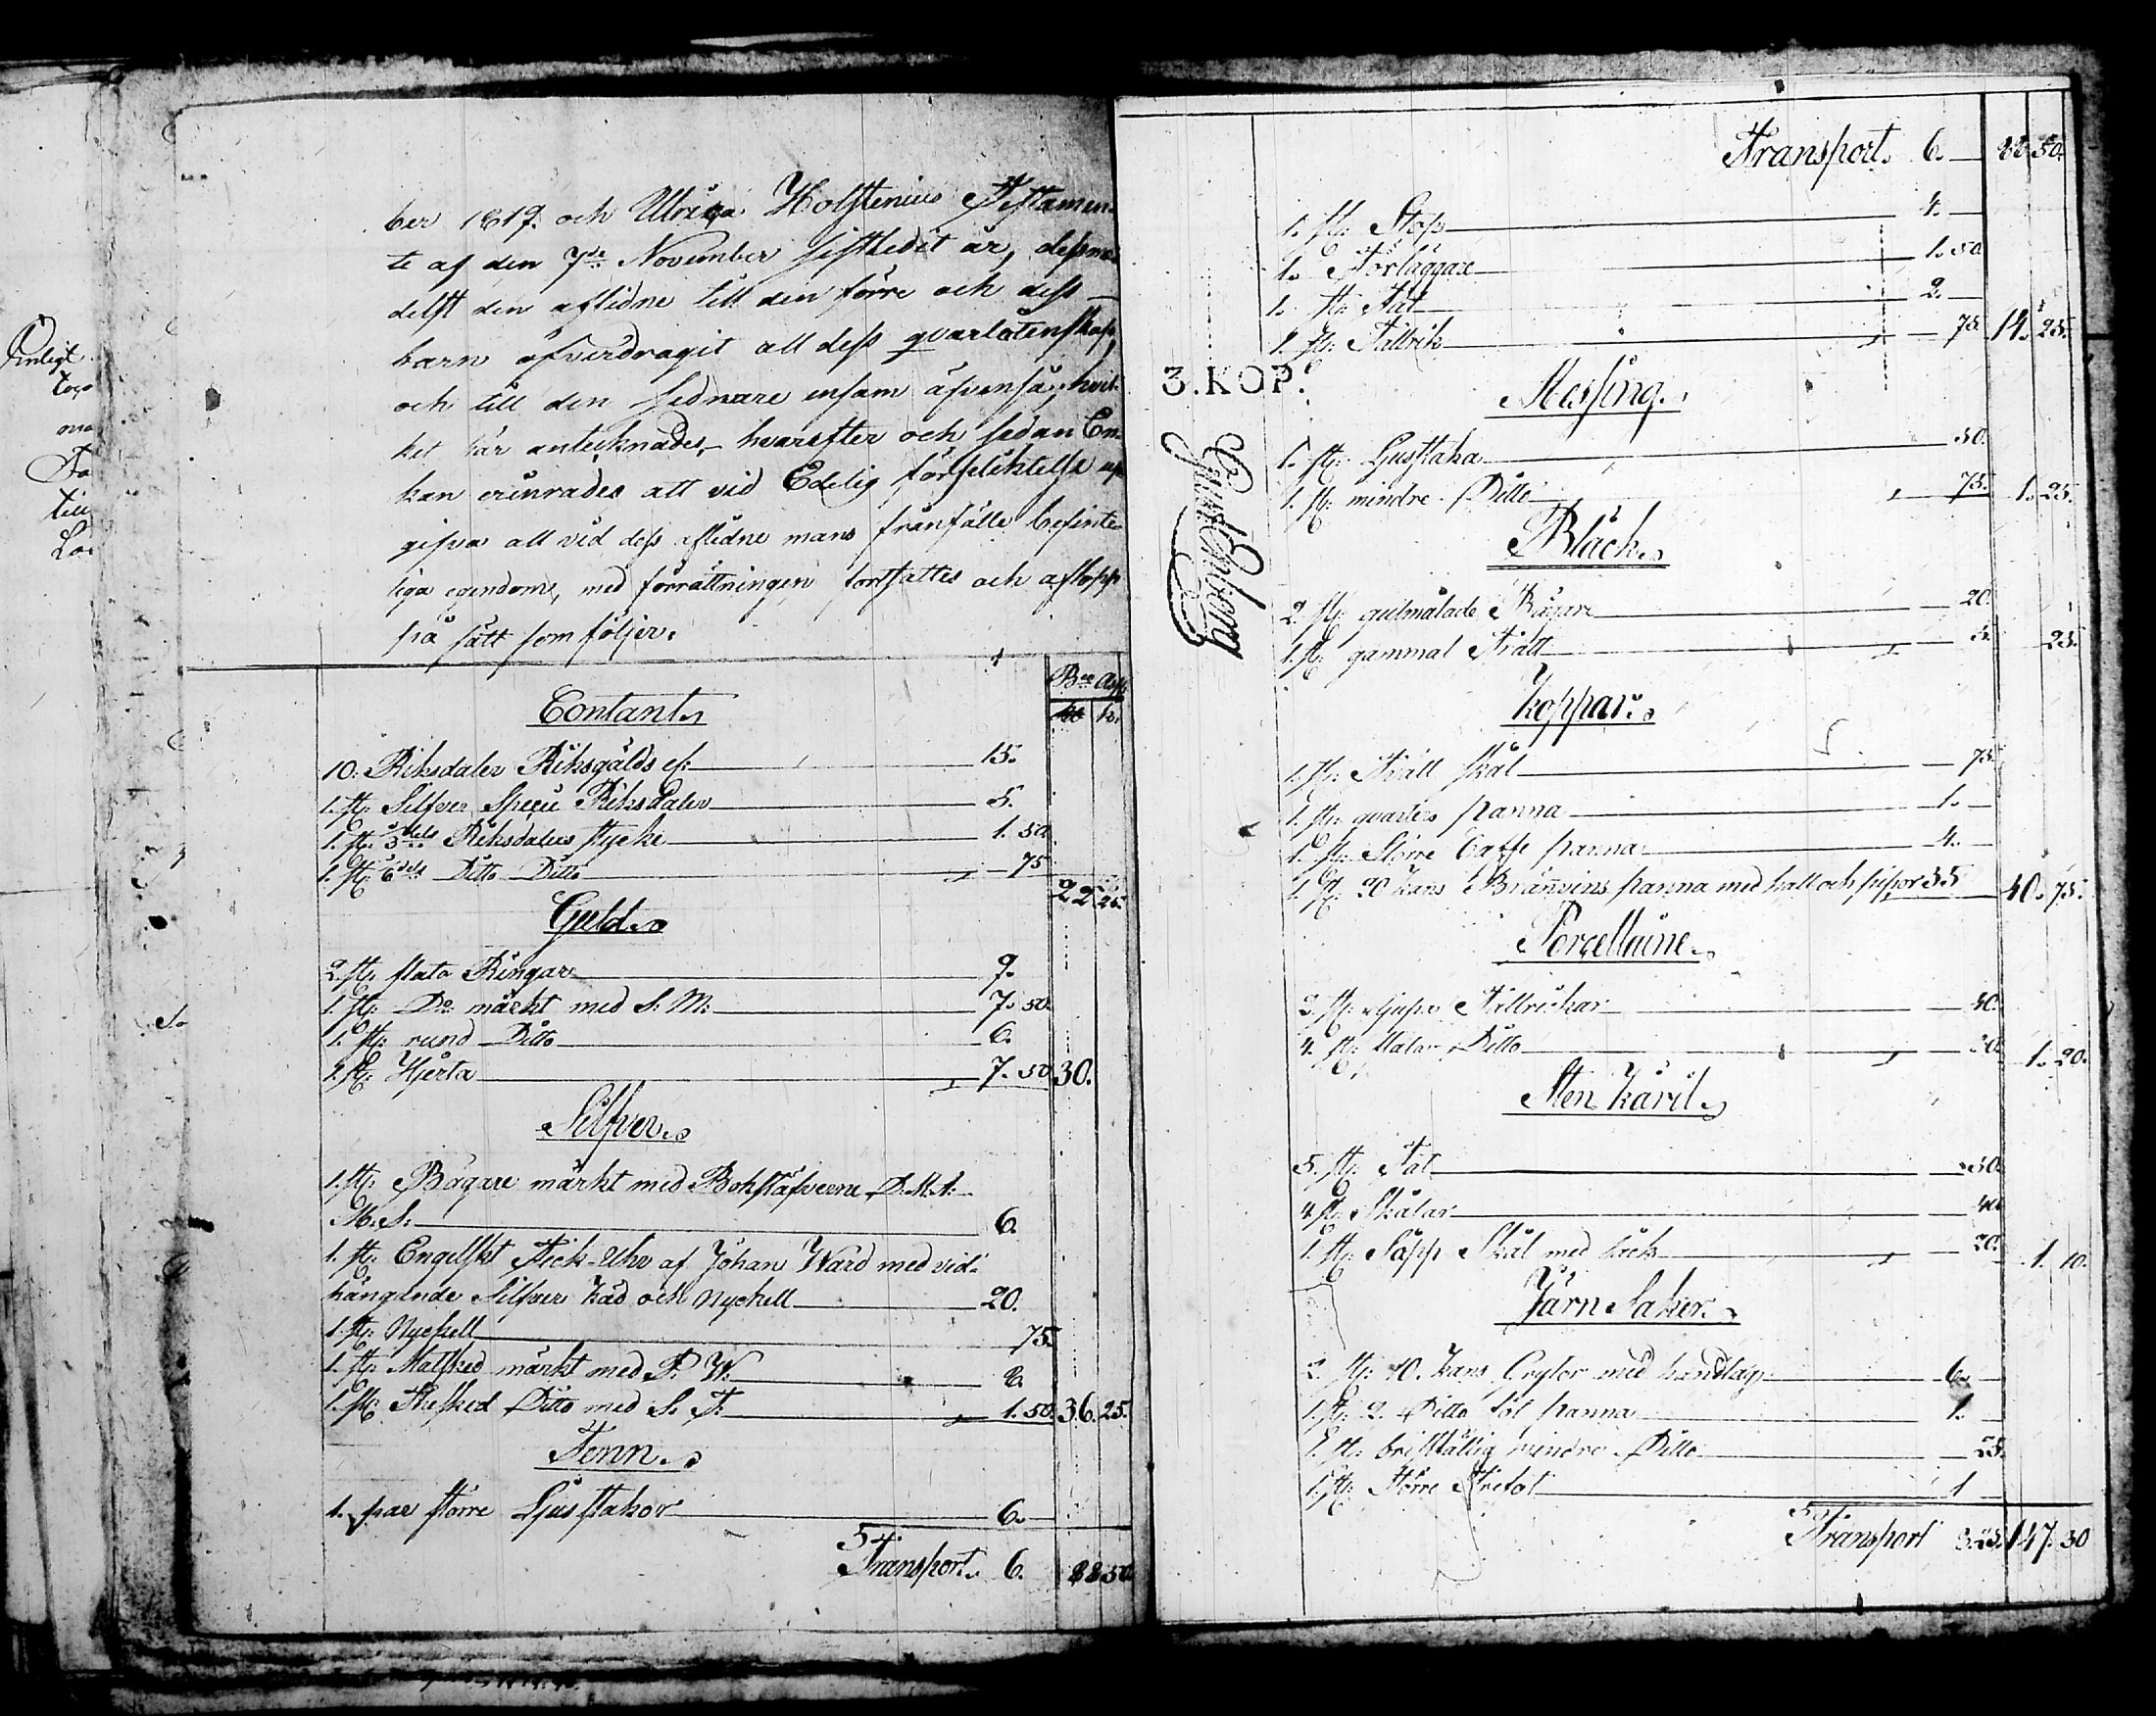 Enligt
ber 1819. och Ulrica Holstenius Testamen-
te af den 7de November sistledit år, dessme-
delst den aflidne till den förre och dess
barn öfverdragit all dess qvarlåtenskap,
och till den sednare ensam äfvenså; hvil-
ket här antecknades, hvarefter och sedan En-
kan erinrades att vid Edelig förpliktelse up-
gifva all vid dess aflidne mans frånfälle befinte-
liga egendom, med förrättningen fortsattes och aflopp
på sätt som följer.
Contant.
10. Riksdaler Riksgälds sf: 15.
1. st: Silfver Specie Riksdaler 5.
1. st: 3dels Riksdalers stycke 1. 50.
1. st: 6dels Ditto Ditto 75 22 25.
Guld.
2. st: slata Ringar 9.
1. st: Do märkt med S. M: 7. 50.
1. st: rund Ditto 6.
1. st: Hjerta 7. 50 30.
Silfver.
1. st: Bägare märkt med Bokstäfverne D. M. A:
M. S: 6.
1. st: Engelskt Fick-Uhr af Johan Ward med vid-
hängande Silfver Käd och Nyckell 20.
1. st: Nyckell 75.
1. st: Matsked märkt med P. W. 8.
1. st: Thesked Ditto med S. T: 1. 50. 36. 25.
Tenn.
1. par större Ljusstakar 6.
Transport. 6. 88 50.
Transport. 6. 88 50.
1. st: Stop 4.
1. Förläggare 1. 50
1. st: Fat 2.
1. st: Tallrik 75. 14. 25.
3. KOP.
Messing.
1. st: Ljusstaka 50.
1. st: mindre Ditto 75. 1. 25.
Bläck.
2. st: gulmålade Bägare 20.
1. st: gammal Tratt 5. 25.
Koppar.
1. st: Tratt skål 75.
1. st: qvarters panna 1.
1. st: Större Caffe panna 4.
1. st: 20 Kans Brännvins panna med hatt och pipor 35 40. 75.
Porcellaine.
2. st: djupa Tallrickar 40.
4. st: slata Ditto 1. 20.
Sten käril.
5. st: Fat 50.
4 st: Skålar 40
1. st: Såpp Skål med lock 20. 1. 10.
Järn Saker.
2. st: 10. Kans Grytor med handtag 6.
1. st: 2. Ditto Söl panna 1.
1. st: bristfällig mindre Ditto 25.
1. st: större Trefot 1
Transport 8. 25. 147. 30